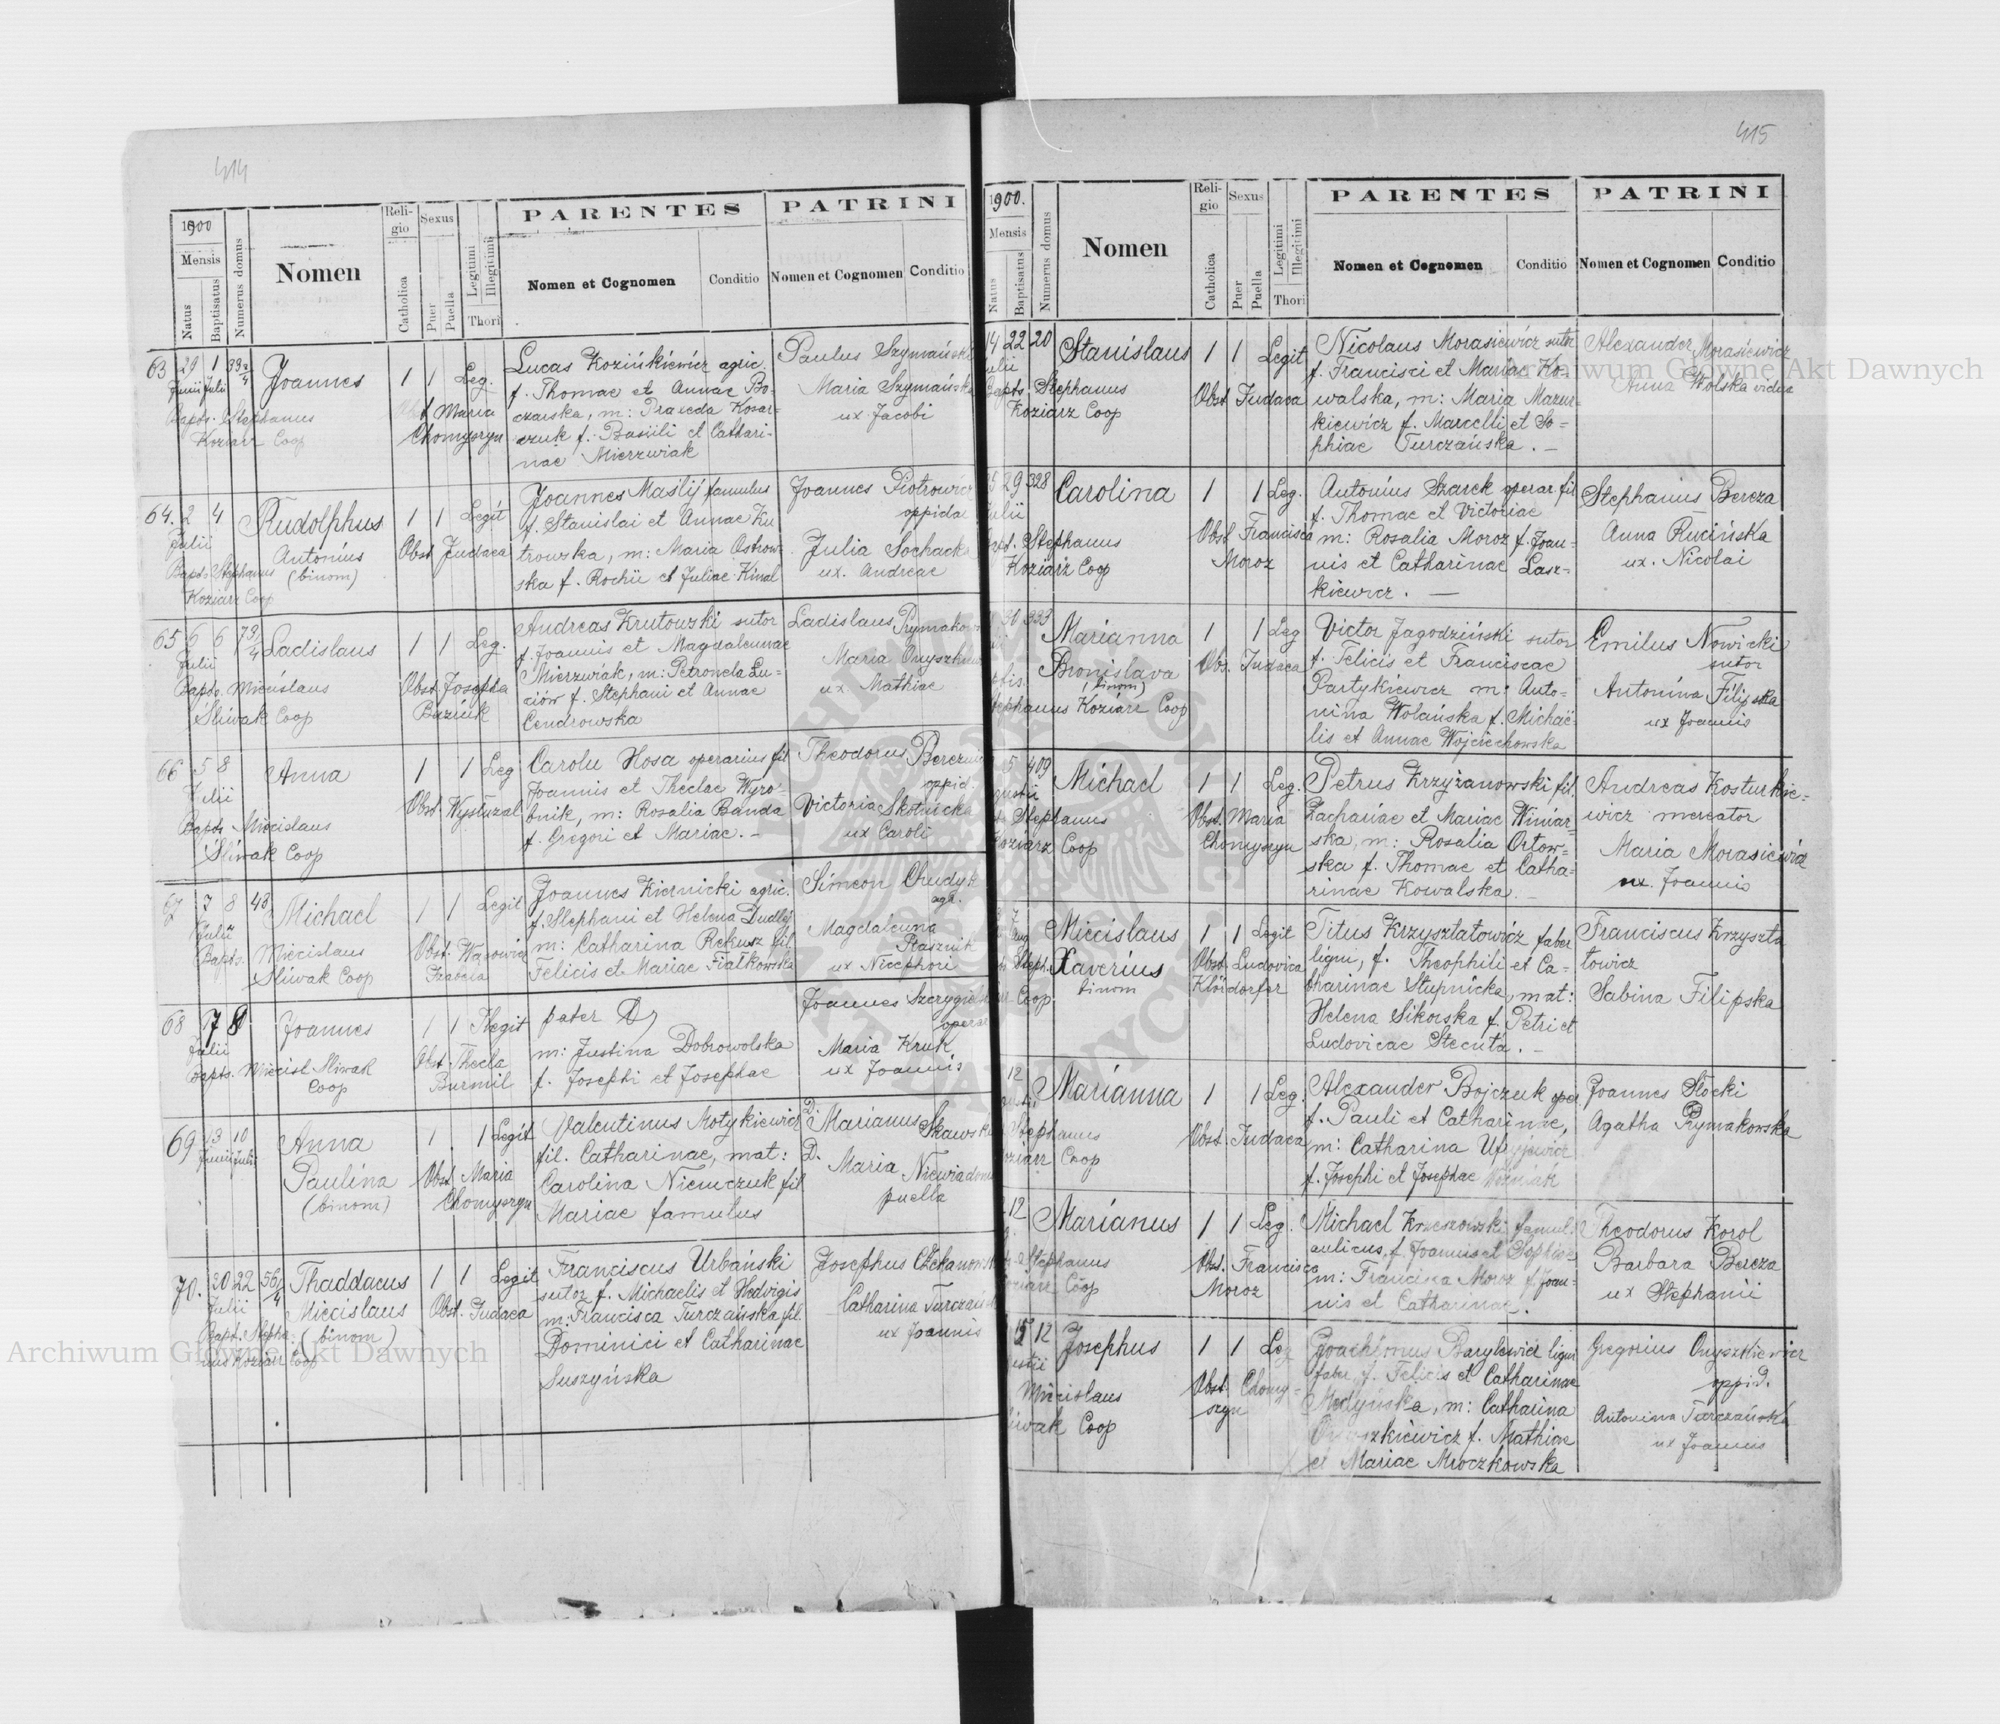 414
1900
Mensis
Natus
Baptisatus
Numerus domus
Nomen
Religio
Catholica
Sexus
Puer
Puella
Legitimi
Illegitimi
Thori
PARENTES
Nomen et Cognomen
Conditio
PATRINI
Nomen et Cognomen
Conditio
63 29 1 39 2/4 Joannes 1 1 Leg.
Junii Julii
Bapts. Stephanus
Koziarz Coop
Obst Maria
Chomyszyn
Lucas Kozińkiewicz agric.
f. Thomae et Annae Bo-
czarska, m: Praxeda Kosar-
czuk f. Basilii et Cathari-
nae Mierzwiak
Paulus Szymański
Maria Szymańska
ux Jacobi
64. 2 4 Rudolphus 1 1 Legit
Julii
Antonius
(binom)
Bapts Stephanus
Koziarz Coop
Obst. Judaea
Joannes Maślij famulus
f. Stanislai et Annae Ku
trowska, m: Maria Ostrow-
ska f. Rochii et Juliae Kinal
Joannes Piotrowicz
oppida
Julia Sochacka
ux. Andreae
65 6 6 73/4 Ladislaus 1 1 Leg.
Julii
Bapts. Miecislaus
Śliwak Coop
Obst. Josepha
Buzink
Andreas Krutowski sutor
f. Joannis et Magdalennae
Mierzwiak, m: Petronela Lu-
ciów f. Stephani et Annae
Cendrowska
Ladislaus Rymakows
Maria Onyszkiew
ux Mathiae
66 5 8 Anna 1 1 Leg
Julii
Bapts Miecislaus
Śliwak Coop
Obst. Wystuzal
Carolu Hosa operarius fil
Joannis et Theclae Wyro-
bnik, m: Rosalia Banda
f. Gregori et Mariae. -
Theodorus Berezni
oppid.
Victoria Skotnicka
ux Caroli
67 7 8 43 Michael 1 1 Legit
Julii
Bapts. Miecislaus
Śliwak Coop
Obst. Wąsowicz
Joannes Kiernicki agric.
f. Stephani et Helena Dudlej
m: Catharina Rekusz fil
Felicis et Mariae Fiałkowska
Simeon Chudyk
agr.
Magdalena
Rasznik
ux Nicephori
68 7 8 Joannes 1 1 Illegit
Julii
Bapts. Miecisl Śliwak
Coop
Obst. Thecla
Burmil
pater
m: Justina Dobrowolska
f. Josephi et Josephae
Joannes Szczygiel
operar
Maria Kruk
ux Joannis
69 13 10 Anna 1 1 Legit
Junii Julii
Paulina
(binom)
Obst. Maria
Chomyszyn
Valentinus Motykiewicz
fil. Catharinae, mat:
Carolina Niemczuk fil
Mariae famulus
D. Marianus Skawski
D. Maria Niewiadom
puella
70. 20 22 56/4 Thaddaeus 1 1 Legit
Julii
Miecislaus
(binom)
Bapt. Stepha-
nus Koziarz Coop
Obst. Judaea
Franciscus Urbański
sutor f. Michaelis et Hedvigis
m: Francisca Turczańska fil.
Dominici et Catharinae
Suszyńska
Josephus Czekanowski
Catharina Turczańs
ux Joannis
415
1900.
Mensis
Natus
Baptisatus
Numerus domus
Nomen
Religio
Catholica
Sexus
Puer
Puella
Legitimi
Illegitimi
Thori
PARENTES
Nomen et Cognomen
Conditio
PATRINI
Nomen et Cognomen
Conditio
14 22 20 Stanislaus 1 1 Legit
Bapts. Stephanus
Koziarz Coop
Obst. Judaea
Nicolaus Morasiewicz sutor
f. Francisci et Mariae Ko-
walska, m: Maria Mazur-
kiewicz f. Marcelli et So-
phiae Turczańska. -
Alexander Morasiewicz
Anna Wolska vidua
29 328 Carolina 1 1 Leg.
Stephanus
Koziarz Coop
Obst. Francisca
Moroz
Antonius Szarek operar fil
f. Thomae et Victoriae
m: Rosalia Moroz f. Joan-
nis et Catharinae Lasz-
kiewicz. -
Stephanus Bereza
Anna Rucińska
ux. Nicolai
30 333 Marianna 1 1 Leg
Bronislava
(binom)
Stephanus Koziarz Coop
Obs. Judaea
Victor Jagodziński sutor
f. Felicis et Franciscae
Partykiewicz m: Anto-
nina Wolańska f. Michaë-
lis et Annae Wojciechowska
Emilus Nowicki
sutor
Antonina Filipska
ux Joannis
5 409 Michael 1 1 Leg.
Stephanus
Koziarz Coop
Obst. Maria
Chomyszyn
Petrus Krzyżanowski fil.
Zachariae et Mariae Winiar-
ska, m: Rosalia Ortow-
ska f. Thomae et Catha-
rinae Kowalska. -
Andreas Kosturkie-
wicz mercator
Maria Morasiewicz
ux. Joannis
7 Miecislaus 1 1 Legit
Aug
Xaverius
binom
Steph.
Coop.
Obst. Ludovica
Klöisdorfer
Titus Krzyształowicz faber
lign, f. Theophili et Ca-
tharinae Stupnicka, mat:
Helena Sikorska f. Petri et
Ludovicae Stecuta. -
Franciscus Krzyszta
towicz
Sabina Filipska
12 Marianna 1 1 Leg.
Stephanus
Koziarz Coop
Obst. Judaea
Alexander Bojczuk oper
f. Pauli et Catharinae,
m: Catharina
f. Josephi et Josephae Woźniak
Joannes Słocki
Agatha Rymakowska
12 Marianus 1 1 Leg.
Stephanus
Koziarz Coop
Obs. Francisca
Moroz
Michael Krzeszowski famul.
aulicus, f. Joannis et Sophiae
m: Francisca Moroz f. Joan-
nis et Catharinae.
Theodorus Korol
Barbara Bereza
ux Stephanii
12 Josephus 1 1 Leg
Miecislaus
Śliwak Coop
Obst. Chomy-
szyn
Joachimus Barylewicz lign
faber, f. Felicis et Catharinae
Medyńska, m: Catharina
Onyszkiewicz f. Mathiae
et Mariae Mroczkowska
Gregorius Onyszkiewicz
oppid.
Antonina Turczańska
ux Joannis
Archiwum Główne Akt Dawnych
Archiwum Główne Akt Dawnych